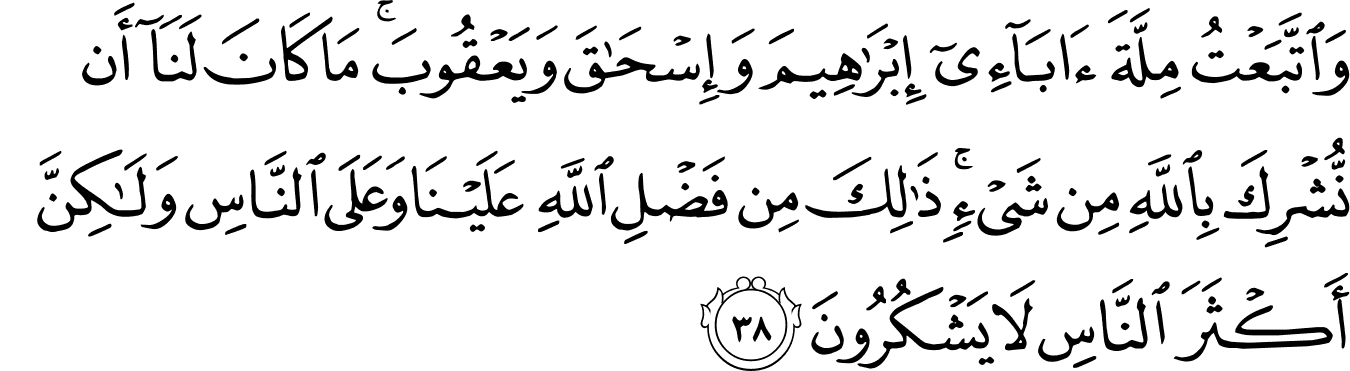 وَٱتَّبَعۡتُ مِلَّةَ ءَابَآءِيٓ إِبۡرَٰهِيمَ وَإِسۡحَٰقَ وَيَعۡقُوبَۚ مَا كَانَ لَنَآ أَن
نُّشۡرِكَ بِٱللَّهِ مِن شَيۡءٖۚ ذَٰلِكَ مِن فَضۡلِ ٱللَّهِ عَلَيۡنَا وَعَلَى ٱلنَّاسِ وَلَٰكِنَّ
أَكۡثَرَ ٱلنَّاسِ لَا يَشۡكُرُونَ ٣٨